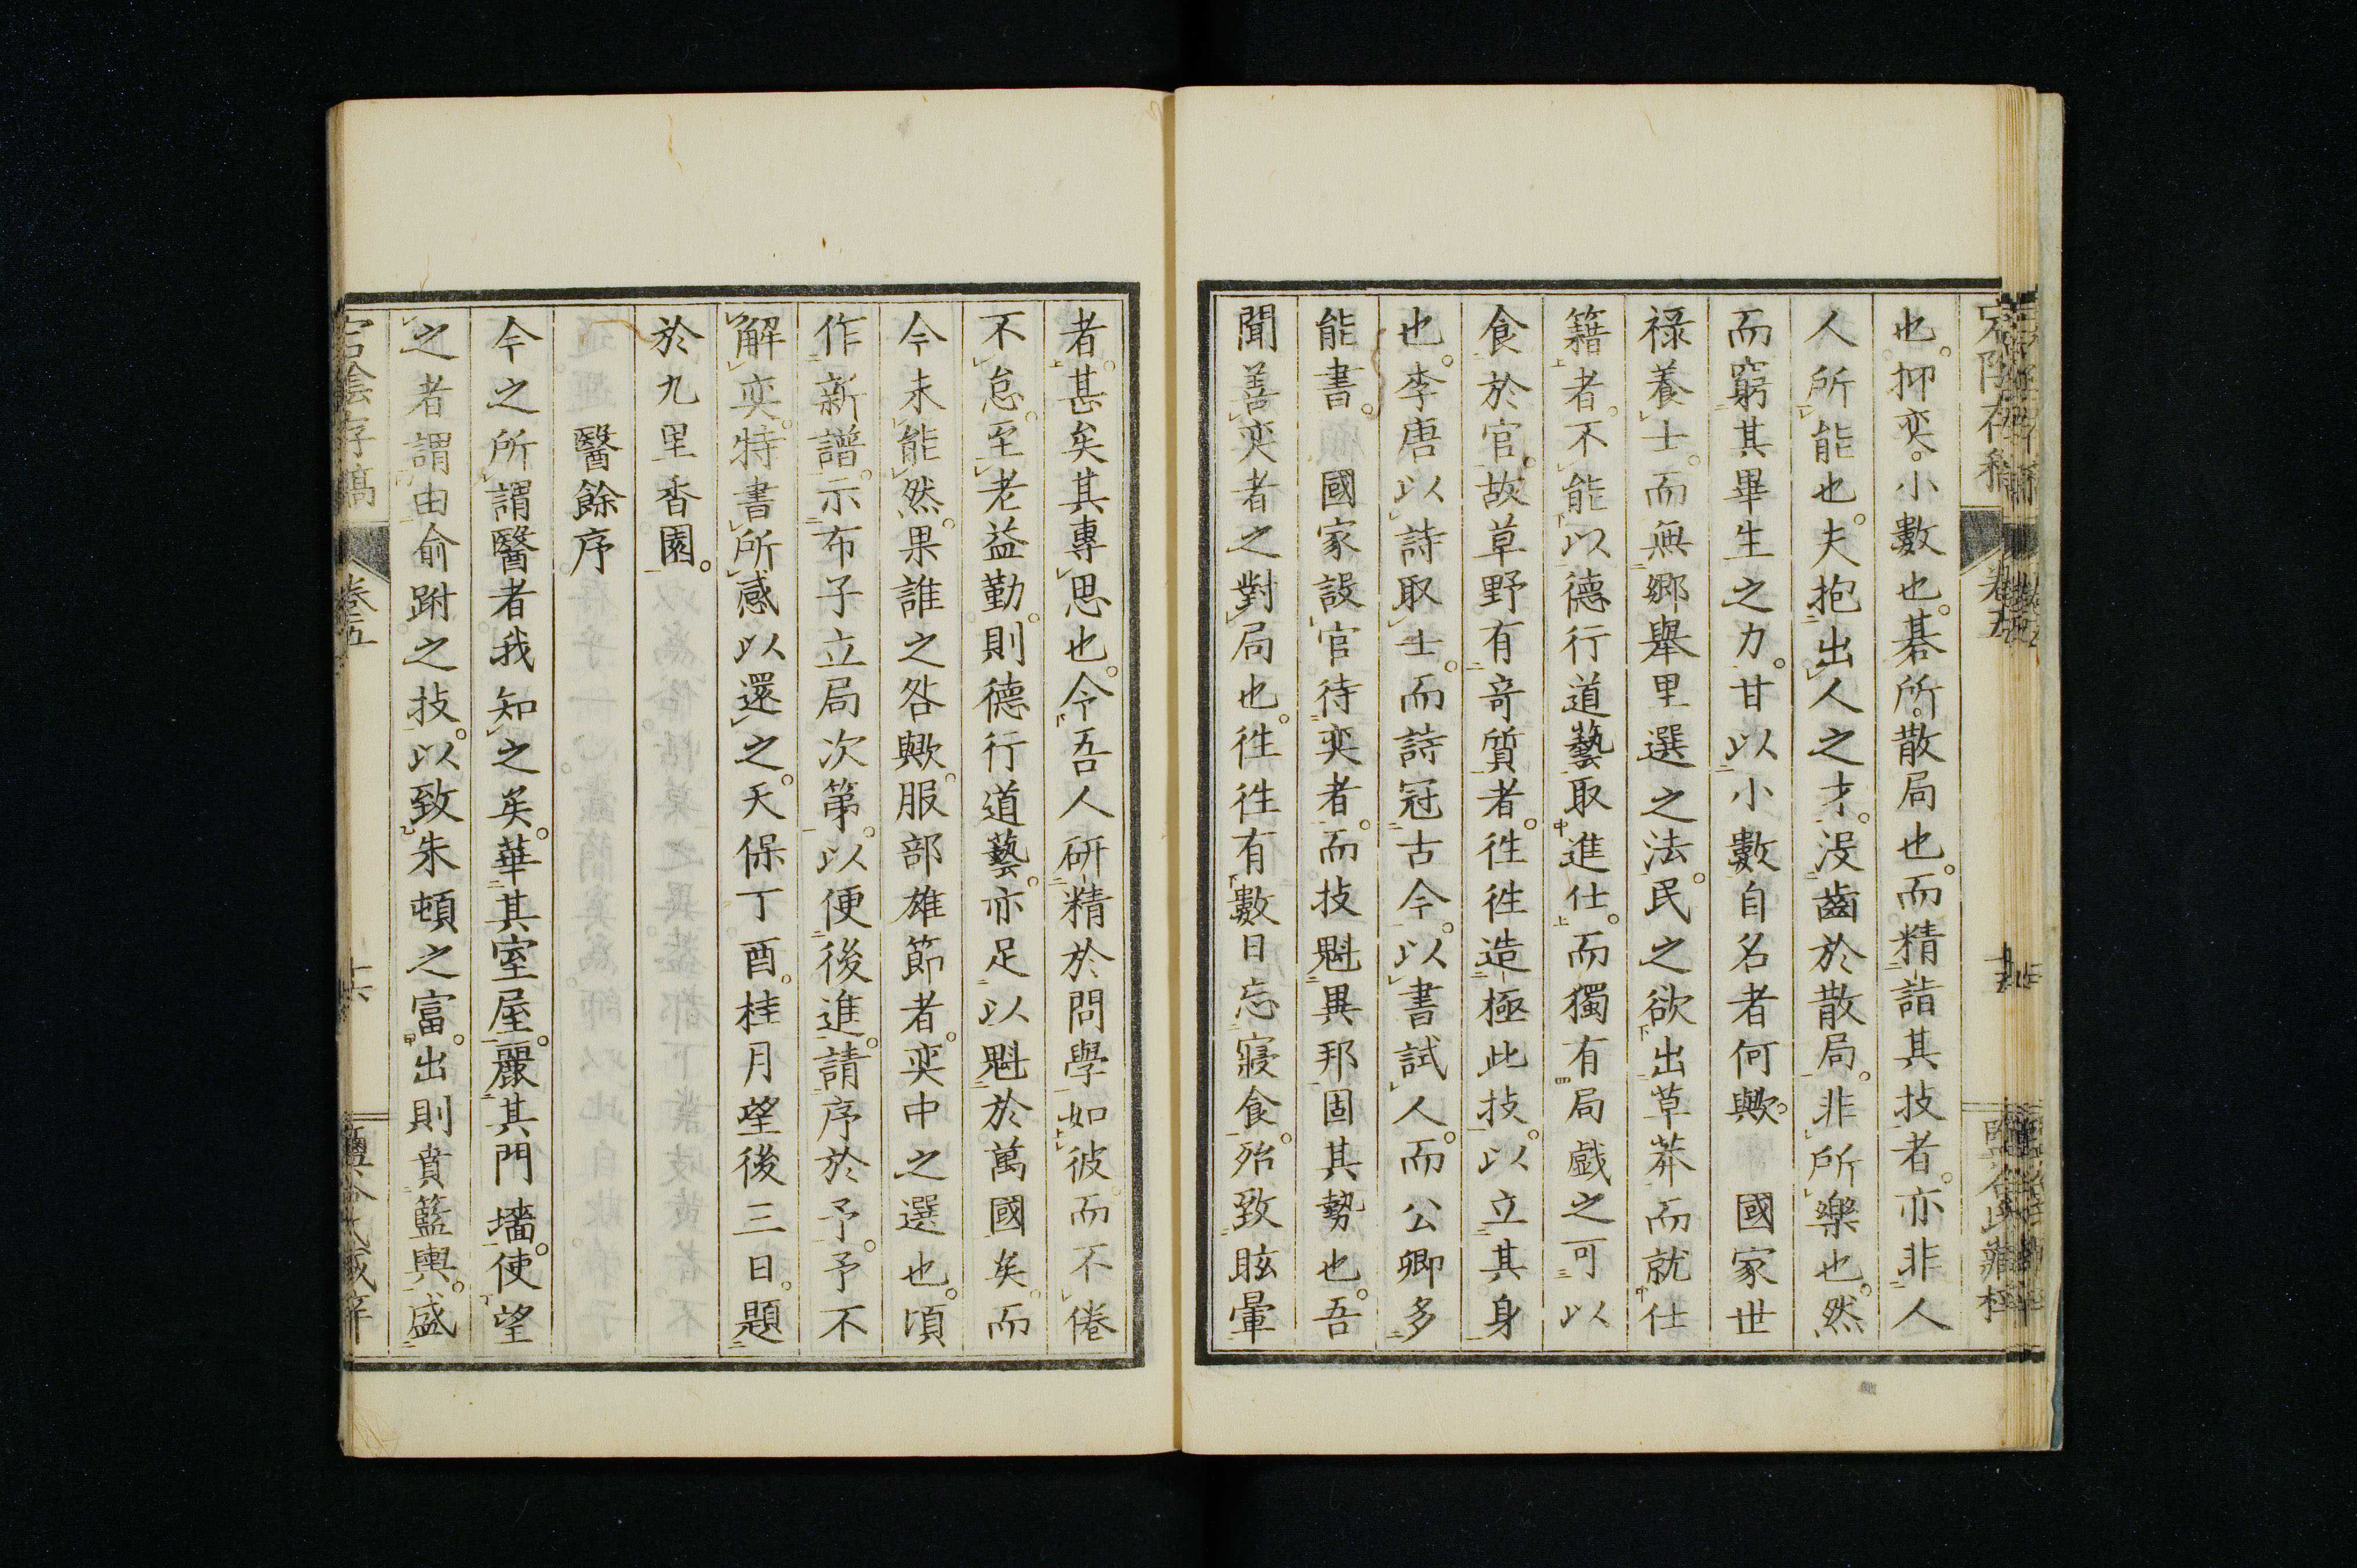 也。抑奕。小數也。碁所。散局也。而精詣其技者。亦非人
人所能也。夫抱出人之才。没齒於散局。非所樂也。然
而窮其畢生之力。甘以小數自名者何歟。國家世
祿養士。而無鄉舉里選之法。民之欲出草莽而就仕
籍者。不能以德行道藝取進仕。而獨有局戲之可以
食於官。故草野有竒質者。徃徃造極此技。以立其身
也。李唐以詩取士。而詩冠古今。以書試人。而公卿多
能書。國家設官待奕者。而技魁異邦固其勢也。吾
聞善奕者之對局也。徃徃有數日忘寢食。殆致眩暈
者。甚矣其專思也。今吾人研精於問學如彼而不倦
不怠。至老益勤。則德行道藝。亦足以魁於萬國矣。而
今未能然。果誰之咎歟。服部雄節者。奕中之選也。頃
作新譜。示布子立局次第。以便後進。請序於予。予不
解奕。特書所感以還之。天保丁酉。桂月望後三日。題
於九里香園。
醫餘序
今之所謂醫者我知之矣。華其室屋。麗其門墻。使望
之者謂由俞跗之技。以致朱頓之富。出則賁籃輿。盛
卷五